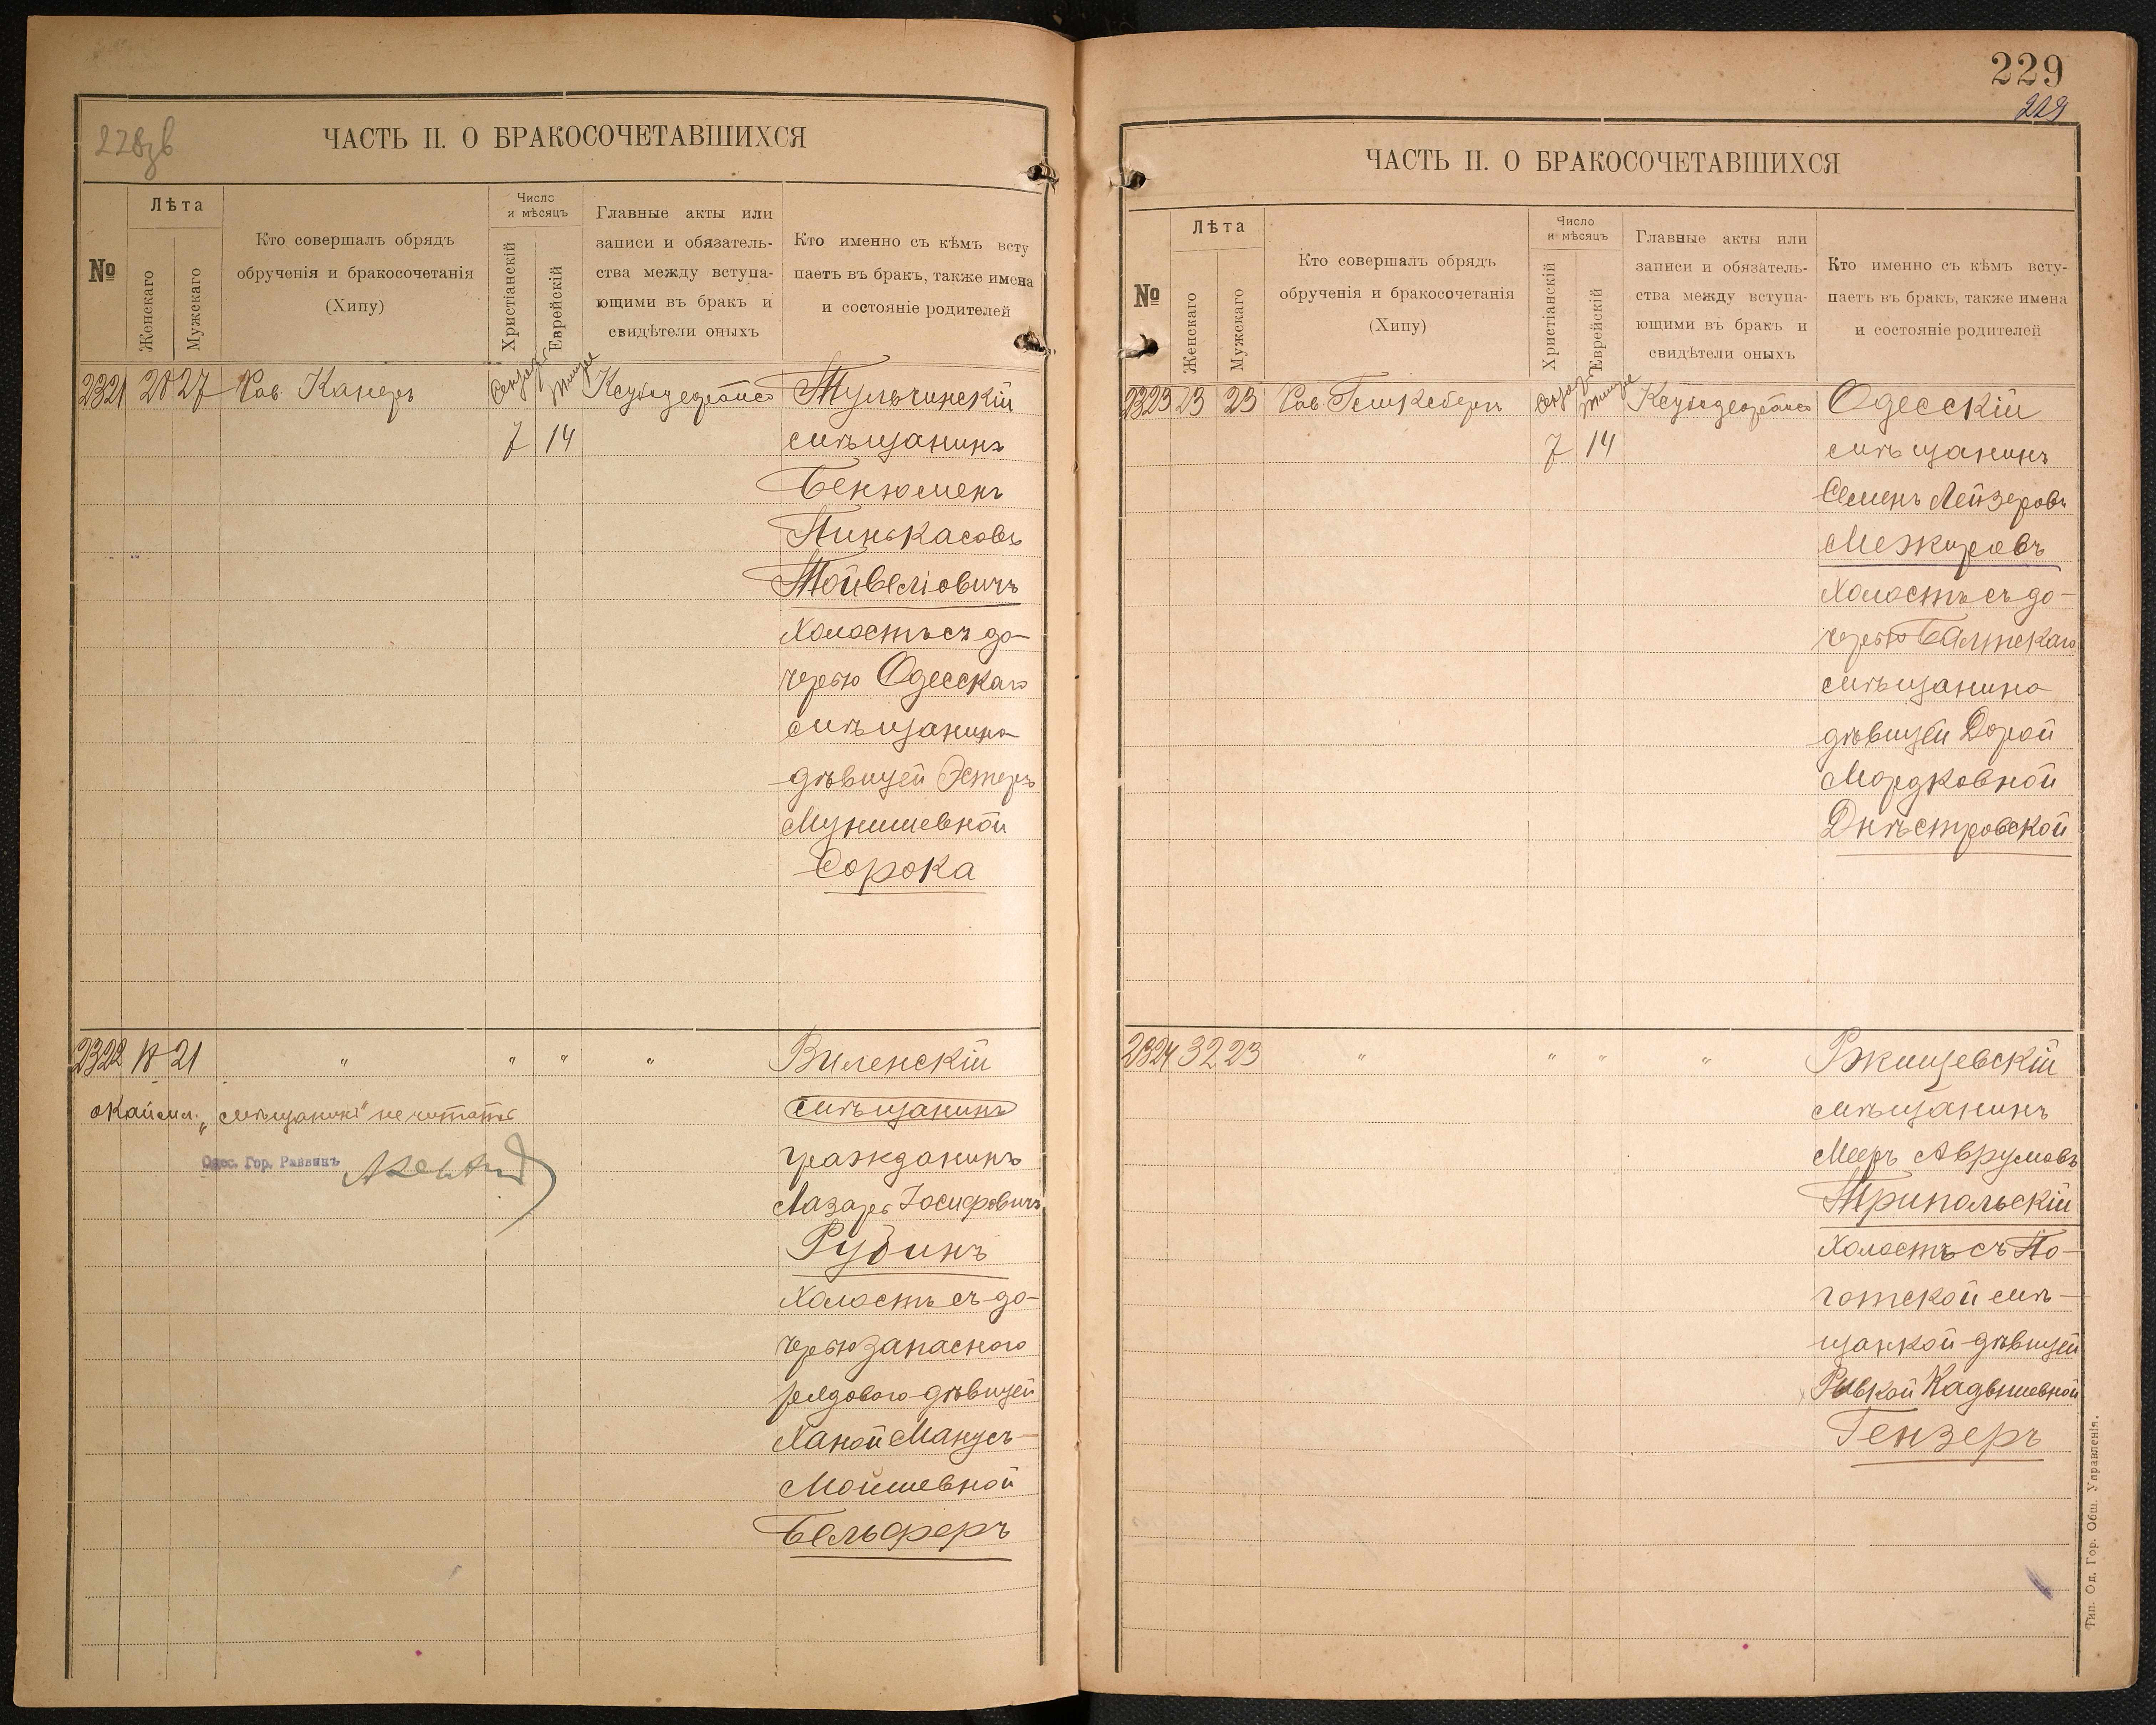 228зв
ЧАСТЬ II. О БРАКОСОЧЕТАВШИХСЯ
№
Лѣта
Женскаго
Мужескаго
Кто совершалъ обрядъ
обрученія и бракосочетанія
(Хипу)
Число
и мѣсяцъ
Христіанскій
Еврейскій
Главные акты или
записи и обязатель-
ства между вступа-
ющими въ бракъ и
свидѣтели оныхъ
Кто именно съ кѣмъ всту
паетъ въ бракъ, также имена
и состояніе родителей
2321 20 27 Рав. Канеръ Тульчинскій
7 14 мѣщанинъ
Бенюменъ
Пинькасовъ
Тойвеліовичъ
Холостъ съ до-
черью Одесскаго
мѣщанина
дѣвицей Эстеръ
Мунишевной
Сорока
2322 18 21 " " " " Виленскій
окаймл. „мѣщанинъ" не читать мѣщанинъ
Одес. Гор. Раввинъ
гражданинъ
Лазарь Іосифовичъ
Рубинъ
Холостъ съ до-
черью запасного
рядового дѣвицей
Ханой Манусъ-
Мойшевной
Бельферъ
229
229
ЧАСТЬ II. О БРАКОСОЧЕТАВШИХСЯ
№
Лѣта
Женскаго
Мужскаго
Кто совершалъ обрядъ
обрученія и бракосочетанія
(Хипу)
Число
и мѣсяцъ
Христіанскій
Еврейскій
Главные акты или
записи и обязатель-
ства между вступа-
ющими въ бракъ и
свидѣтели оныхъ
Кто именно съ кѣмъ всту-
паетъ въ бракъ, также имена
и состояніе родителей
2323 23 23 Рав. Одесскій
7 14 мѣщанинъ
Семенъ Лейзеровъ
Межировъ
Холостъ съ до-
черью Балтскаго
мѣщанина
дѣвицей Дорой
Мордковной
Днѣстровской
2324 32 23 " " " " Ржищевскій
мѣщанинъ
Мееръ Аврумовъ
Трипольскій
Холостъ съ По-
готской мѣ-
щанкой дѣвицей
Ривкой Кадышевной
Гензеръ
Тип. Од. Гор. Общ. Управленія.